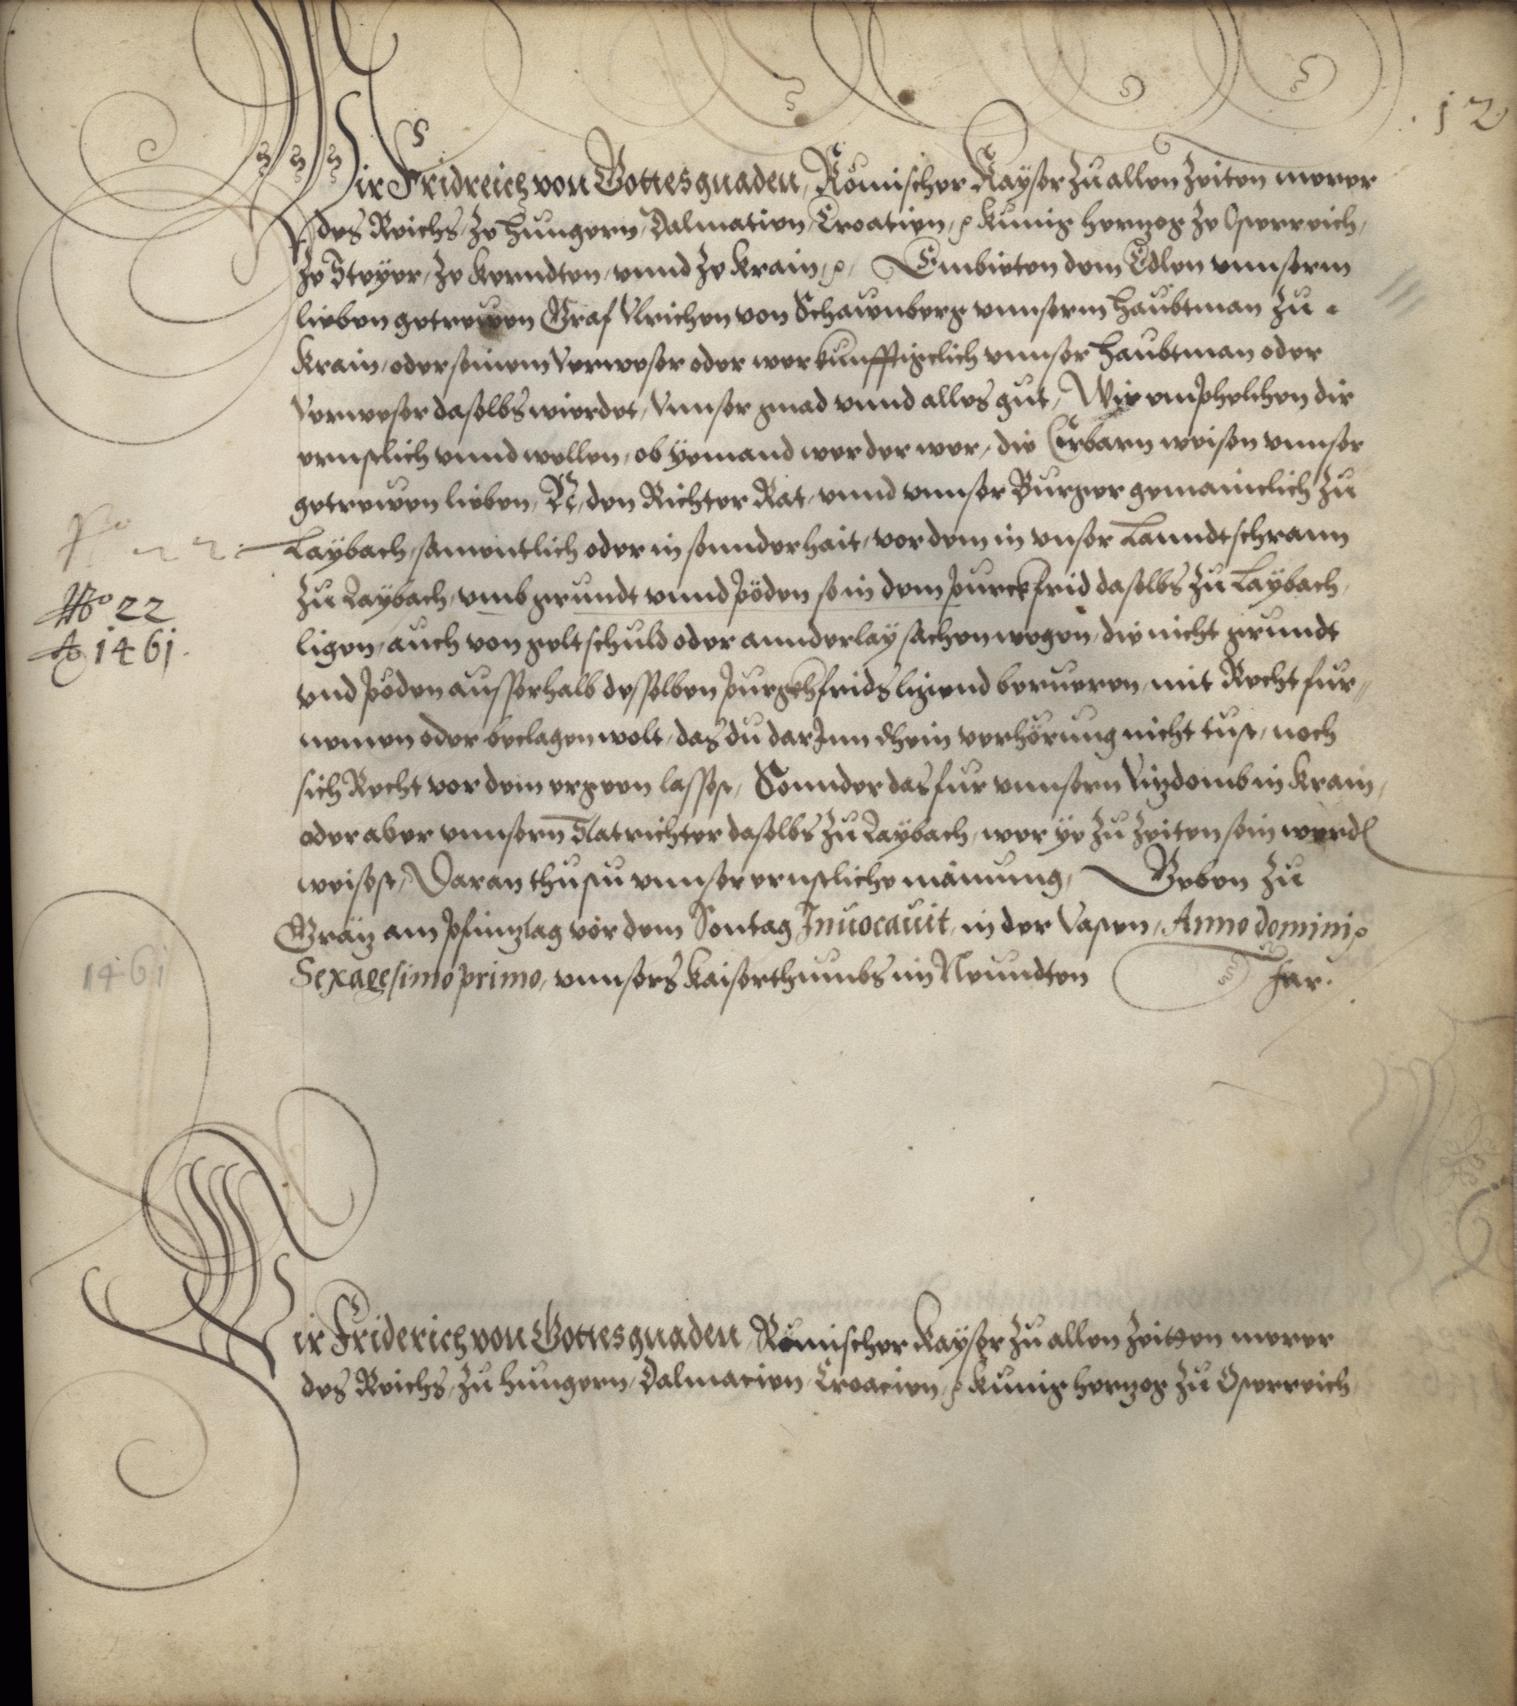 12
Wir Fridreich von Gottes gnaden, Römischer Kayser zu allen Zeiten merer
des Reichs, ze Hungern, Dalmatien, Croatien, ꝛc Kunig Hertzog ze Osterreich,
ze Steyer, ze Kerndten, vnnd ze Krain, ꝛc, Embieten dem Edlen vnnserm
lieben getrewen Graf Vlrichen von Schawnberg vnnserm Haubtman zu
Krain, oder seinem Verweser oder wer kunfftigclich vnnser Haubtman oder
Verweser daselbs wierdet, Vnnser gnad vnnd alles gut, Wir emphelhen dir
ernstlich vnnd wellen, ob yemand werder wer, die Erbarn weisen vnnser
getrewen lieben, N, den Richter Rat, vnnd vnnser Burger gemainclich zu
Laybach, samentlich oder in sonnderhait, vor dem in vnser Lanndtschrann
zu Laybach, vmb grundt vnnd pöden so in dem purckfrid daselbs zu Laybach,
No 22
ligen, auch von geltschuld oder annderlay sachen wegen, die nicht grundt
Ao 1461.
vnd pöden ausserhalb desselben purgkhfrids ligend berueren, mit Recht fur=
nemen oder beclagen wolt, das du darInn dhein verhörung nicht tust, noch
sich Recht vor dem ergeen lassest, Sonnder das fur vnnsern Vizdomb in Krain,
oder aber vnnsern Statrichter daselbs zu Laybach, wer ye zu Zeiten sein werd
weisest, Daran thustu vnnser ernstliche mainung, Geben zu
Gräz am Phinztag vor dem Sontag Inuocauit, in der Vasten, Anno domini ꝛc
1461
Sexagesimo primo, vnnsers Kaiserthumbs im Neundten Jar.
Wir Friderich von Gottes gnaden, Römischer Kayser zu allen Zeitten merer
des Reichs, zu Hungern, Dalmacien, Croacien, ꝛc Kunig Hertzog zu Osterreich